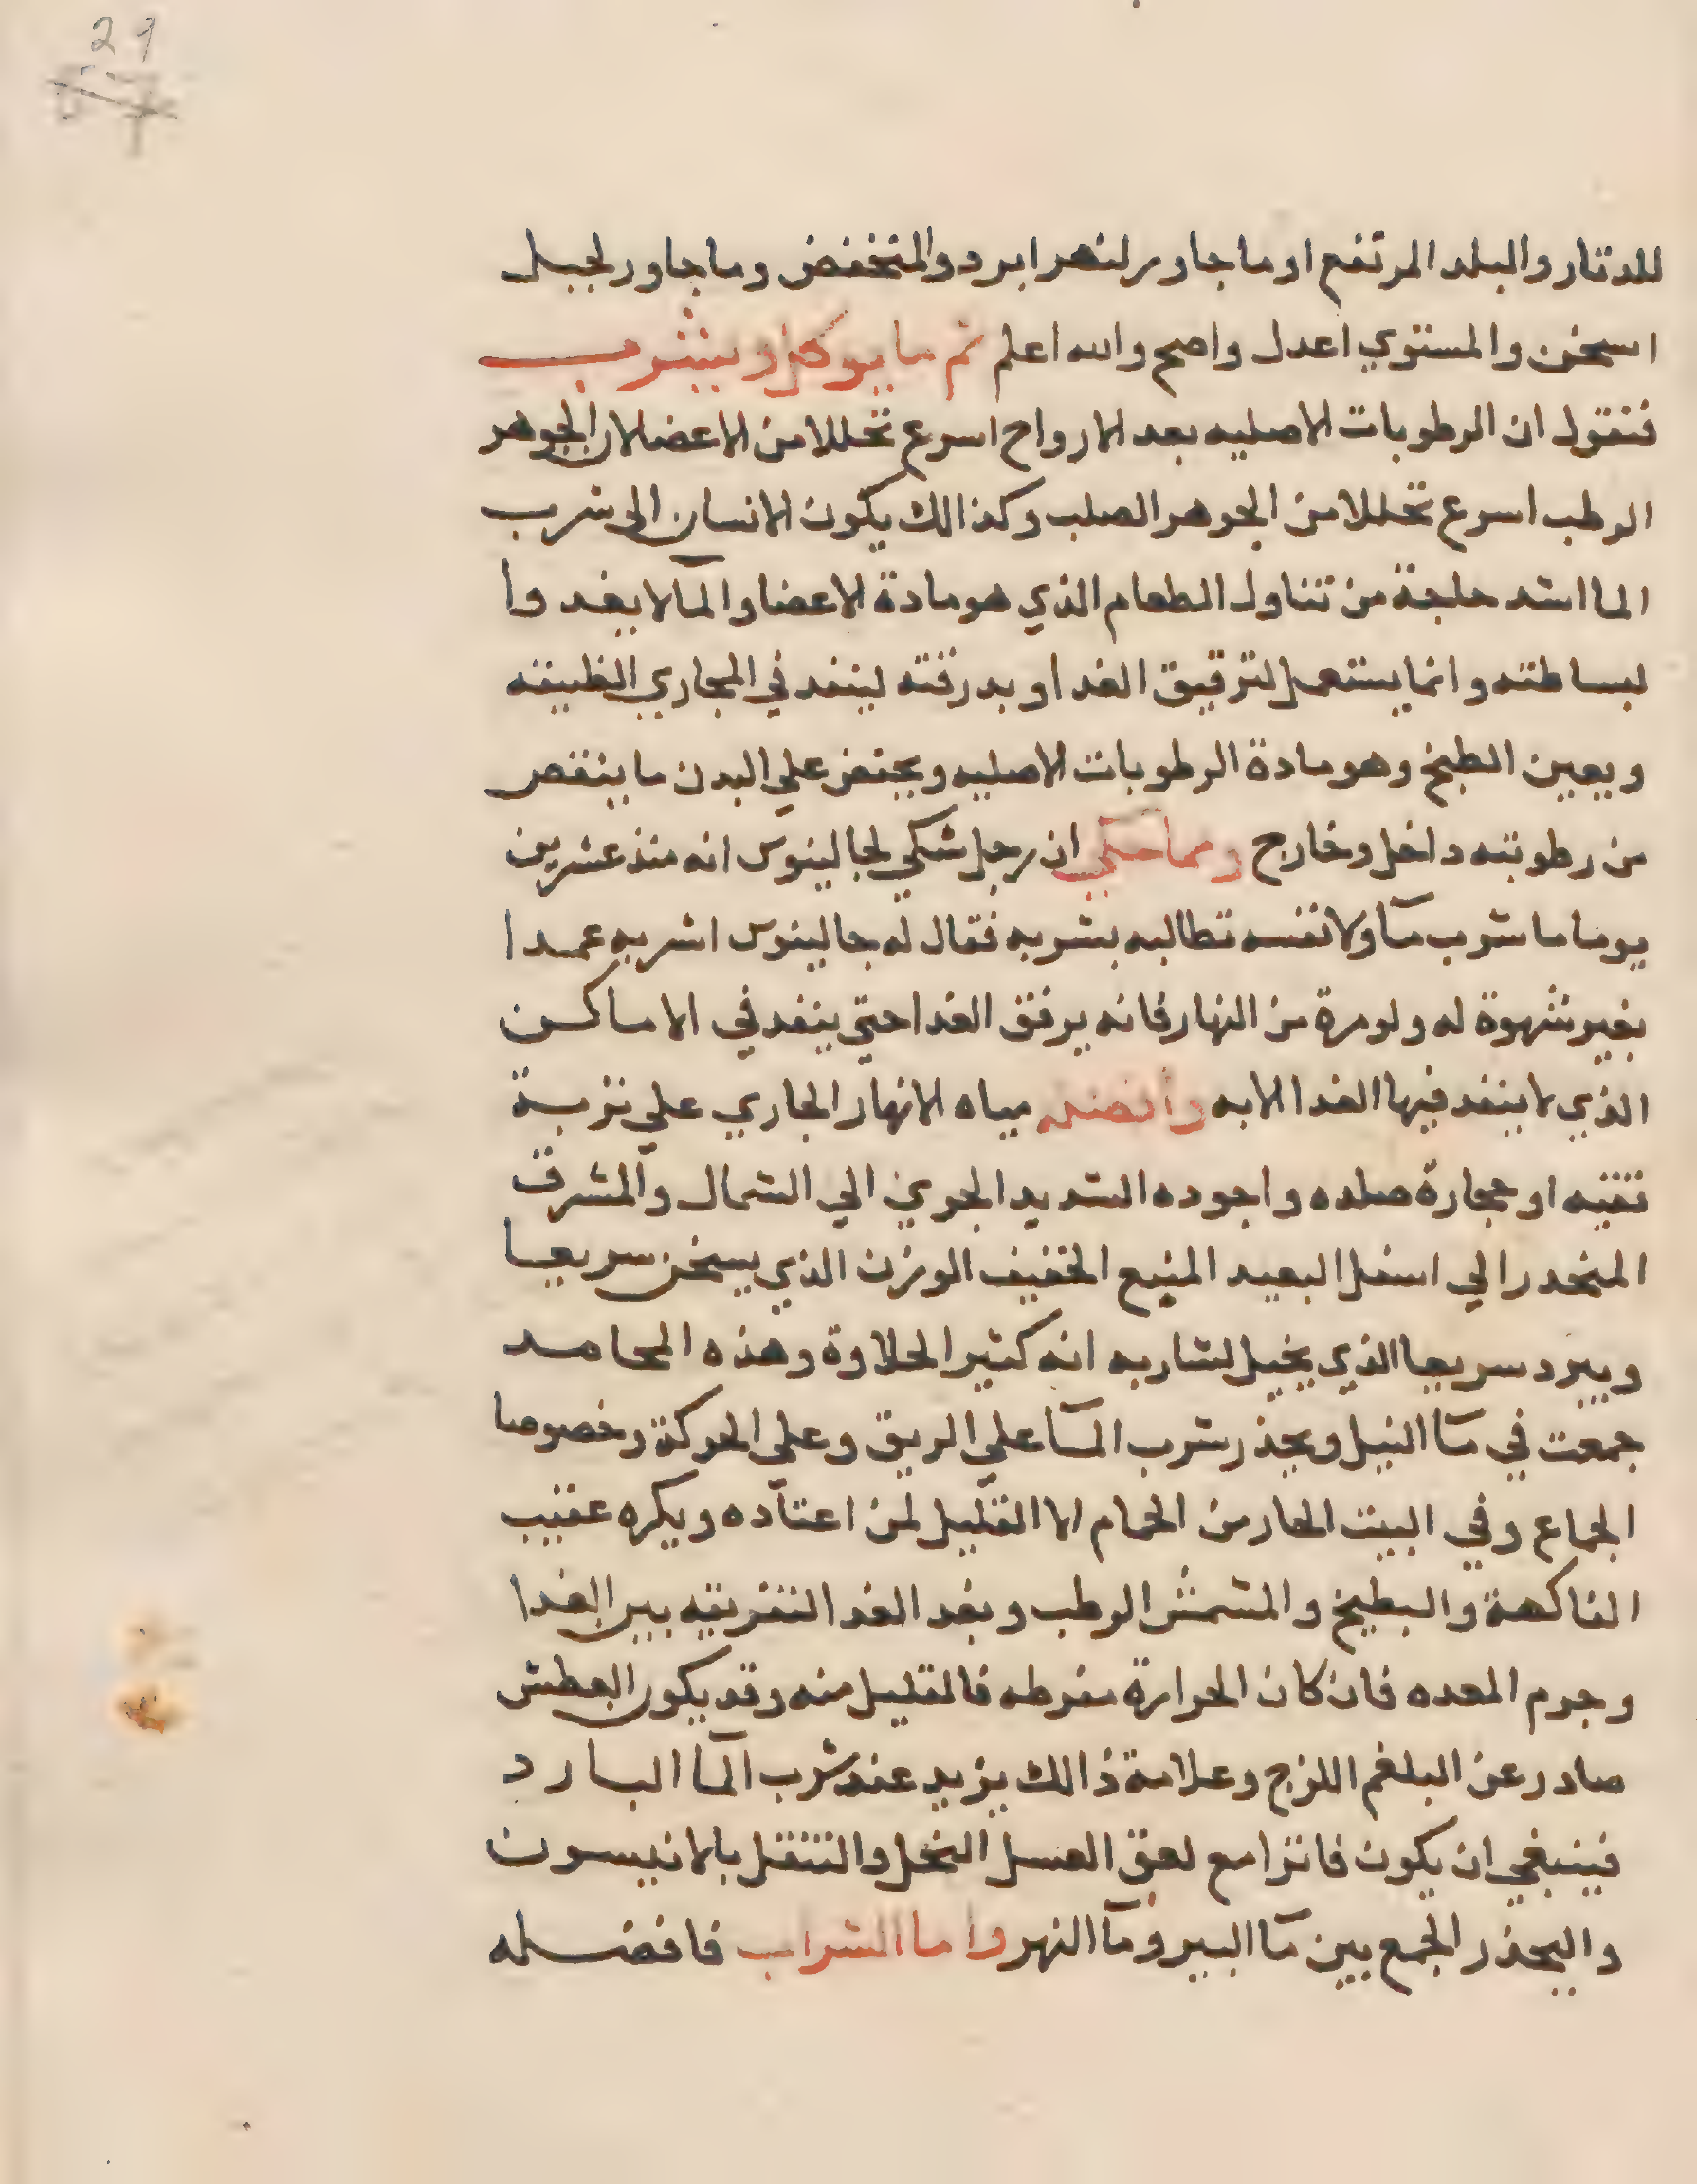 29
للدثار والبلد المرتفع او ما جاور لنهر ابرد والمنخفض وما جاور لجبل
اسخن والمستوي اعدل واصح والله اعلم ثم ما يوكل او يشرب
فنقول ان الرطوبات الاصليه بعد الارواح اسرع تحللا من الاعضا لان الجوهر
الرطب اسرع تحللا من الجوهر الصلب وكذالك يكون الانسان الى شرب
الما اشد حاجة من تناول الطعام الذي هو مادة الاعضا والمآ لا يغدوا
لبساطته وانما يستعمل لترقيق الغدا وبدرقته لينفد في المجاري الظيقه
ويعين الطبخ وهو مادة الرطوبات الاصليه ويحفض علي البدن ما ينقص
من رطوبته داخل وخارج ومما حكي ان رجل شكي لجالينوس انه منذ عشرين
يوما ما شرب مآ ولا نفسه تطالبه بشربه فقال له جالينوس اشربه عمدا
بغير شهوة له ولو مرة من النهار فانه يرقق الغدا حتي ينفد في الاماكن
الذي لا ينفد فيها الغدا الا به وأفضله مياه الانهار الجاري علي تربة
نقيه او حجارة صلده واجوده الشديد الجري الي الشمال والمشرق
المنحدر الي اسفل البعيد المنبع الخفيف الوزن الذي يسخن سريعا
ويبرد سريعا الذي يخيل لشاربه انه كثير الحلاوة وهذه المحامد
جمعت في مآ النيل ويحذر شرب المآ علي الريق وعلي الحركة وخصوصا
الجماع وفي البيت الحار من الحمام الا القليل لمن اعتاده ويكره عقيب
الفاكهة والبطيخ والمشمش الرطب وبعد الغدا لتفريقه بين الغدا
وجرم المعده فان كان الحرارة مفرطه فالقليل منه وقد يكون العطش
صادر عن البلغم اللزج وعلامة ذالك يزيد عند شرب المآ البارد
فينبغي ان يكون فاترا مع لعق العسل النحل والتنقل بالانيسون
واليحذر الجمع بين مآ البير ومآ النهر واما الشراب فافضله